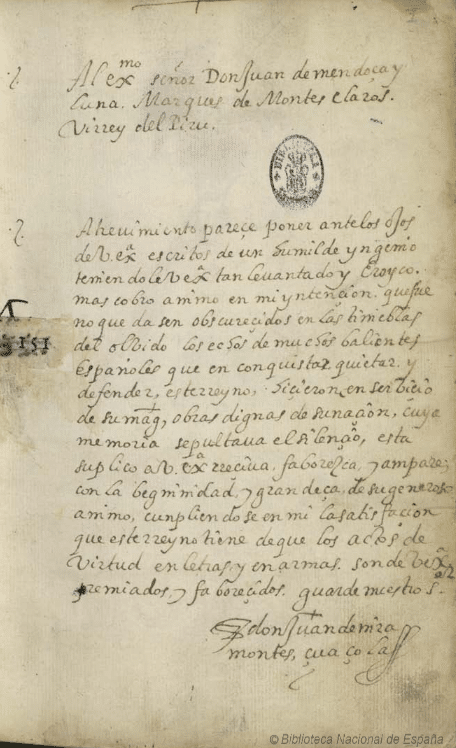 Al exmo señor Don Juan de mendoça y
luna. Marques de Montes Claros.
Virrey del Piru.
BIBLIOTECA
Atrevimiento pareçe poner antelos ojos
de Vexa escritos de un humilde yngenio
teniendole Vexa tan levantado y Eroyco.
mas cobro animo en mi yntençion. que fue
no que dasen obscurecidos en las tinieblas
del olbido los echos de muchos balientes
españoles que en conquistar quietar. y
defender, este rreyno, hicieron en serbicio
de su magd, obras dignas de su naçion, cuya
memoria sepultava el silençio, esta
suplico a V. exa rreciva, faborezca, y ampare,
con la begninidad, y grandeça, de su generoso
animo, cunpliendose en mi la satisfacion
que este rreyno tiene de que los actos de
virtud en letras, y en armas. son de Vexa
premiados, y faboreçidos. guarde nuestro Sr.
don Juan de mira
montes, çuaçola
151
© Biblioteca Nacional de España